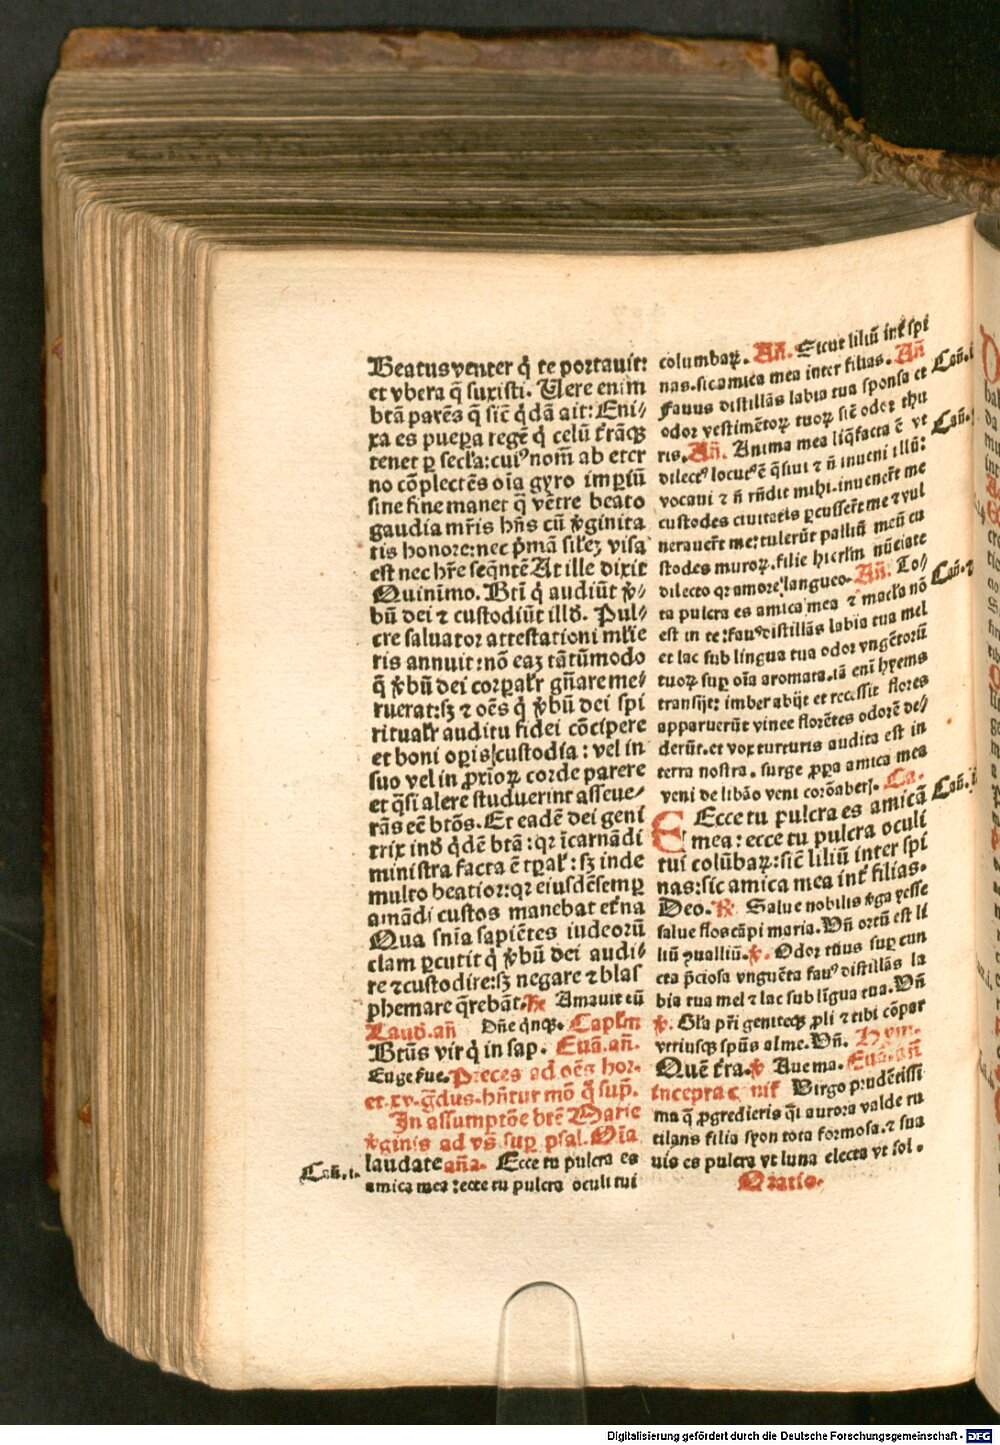 Beatus venter q̇ te portauit:
et vbera q̄ suxisti. Vere enim
btā parēs q̄ sič q̇dā ait: Eni⸗
xa es puerpa̱ regē q̇ celū t̄rāq̨
tenet p̱ secl̄a: cui⁹ nom̄ ab eter
no cōplectēs oīa gyro imp̱iū
sine fine manet q̇ vētre beato
gaudia mr̄is hn̄s cū v̇ginita
tis honore: nec p̄mā sil'eȝ visa
est nec hr̄e seq̄ntē At ille dixit
Quinimo. Btī q̇ audiūt v̇⸗
bū dei ⁊ custodiūt illd̄. Pul⸗
cre saluator attestationi ml̄ie
ris annuit: nō eaȝ tātūmodo
q̄ v̇bū dei corpal'r gn̄are me⸗
ruerat: sȝ ⁊ oēs q̇ v̇bū dei spi
ritual'r auditu fidei cōcipere
et boni op̱is custodia: vel in
suo vel in p̱xioꝝ corde parere
et q̄si alere studuerint asseue⸗
rās eē btōs. Et eadē dei geni
trix ind̄ q̇dē btā: qꝛ īcarnādi
ministra facta ē tp̱al': sȝ inde
multo beatior: qꝛ eiusdē semp̱
amādi custos manebat et̄na
Qua sn̄ia sapiētes iudeorū
clam p̱cutit q̇ v̇bū dei audi⸗
re ⁊ custodire: sȝ negare ⁊ blas
phemare q̄rebāt. R̄ Amauit eū
Laud̄. an̄ Dn̄e q̇nq̨. Capl̄m
Btūs vir q̇ in sap. Euā. an̄.
Euge s̄ue. Preces ad oēs hor.
et xv. g̈dus. hn̄tur mō q̄ sup̱.
In assumptōe btē Marie
v̇ginis ad vs̄ sup̱ psal. Oīa
laudate an̄a. Ecce tu pulcra es
Cañ. i.
amica mea: ecce tu pulcra oculi tui
columbaꝝ. An̄. Sicut liliū int̄ spi
nas. sic amica mea inter filias. An̄
Cañ. i
Fauus distillās labia tua sponsa et
odor vestimētoꝝ tuoꝝ sič odor thu
Cañ.
ris. An̄. Anima mea liq̄facta ē vt
dilect⁹ locut⁹ ē q̄siui ⁊ n̄ inueni illū:
vocaui ⁊ n̄ rn̄dit mihi. inuener̄t me
custodes ciuitatis p̱cusser̄t me ⁊ vul
nerauer̄t me: tulerūt palliū meū cu
stodes muroꝝ. filie hierl̄m nūciate
dilecto qꝛ amore langueo. An̄. To⸗
Cañ.
ta pulcra es amica mea ⁊ macl̄a nō
est in te: fau⁹ distillās labia tua mel
et lac sub lingua tua odor vngētorū
tuoꝝ sup̱ oīa aromata. iā enī hyems
transijt: imber abijt et recessit flores
apparuerūt vinee florētes odorē de⸗
derūt. et vox turturis audita est in
terra nostra. surge p̱pa amica mea
veni de libāo veni corōaberȝ. Ca.
Ecce tu pulcra es amica
Cañ.
mea: ecce tu pulcra oculi
tui colūbaꝝ: sič liliū inter spi
nas: sic amica mea int̄ filias.
Deo. R̄ Salue nobilis v̇ga yesse
salue flos cāpi maria. Vn̄ ortū est li
liū ꝯualliū. v̇. Odor tuus sup̱ cun
cta p̄ciosa vnguēta fau⁹ distillās la
bia tua mel ⁊ lac sub līgua tua. Vn̄
v̇. Gl̄a pr̄i genitoq̨ p̱li ⁊ tibi cōpar
vtriusq̨ spūs alme. Vn̄. Hym.
Quē t̄ra. v̇ Aue ma. Euā. an̄
Virgo prudētissi
ma q̄ p̱gredieris q̄i aurora valde ru
tilans filia syon tota formosa. ⁊ sua
uis es pulcra vt luna electa vt sol.
Oratio.
Digitalisierung gefördert durch die Deutsche Forschungsgemeinschaft - DFG